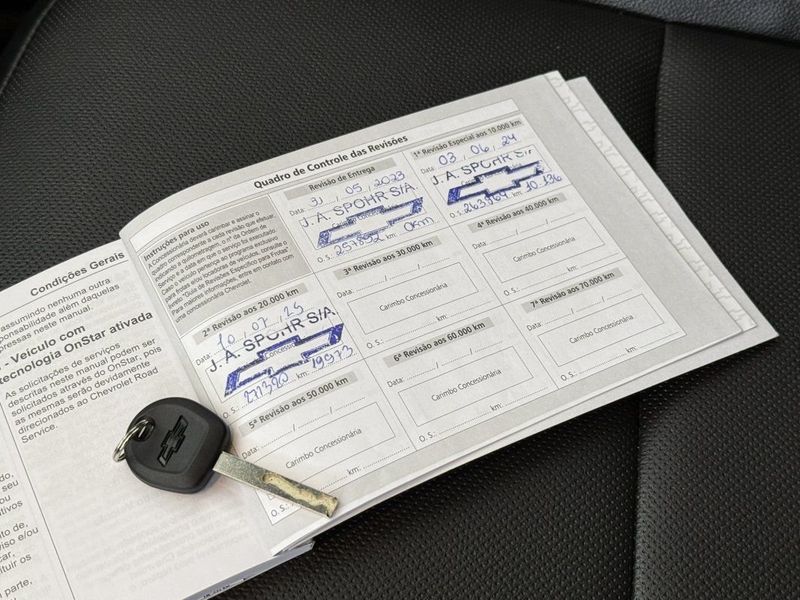 Condições Gerais
assumindo nenhuma outra
responsabilidade além daquelas
expressas neste manual.
- Veículo com
tecnologia OnStar ativada
As solicitações de serviços
descritas neste manual podem ser
solicitados através do OnStar, pois
as mesmas serão devidamente
direcionados ao Chevrolet Road
Service.
Quadro de Controle das Revisões
Instruções para uso
A Concessionária deverá carimbar e assinar o
quadro correspondente a cada revisão que efetuar,
indicando a quilometragem, o nº da Ordem de
Serviço e a data em que o serviço foi executado.
Caso o veículo pertença ao programa exclusivo
para frotas e/ou locadoras de veículos, consulte o
livreto "Guia de Revisões Específico para Frotas".
Para maiores informações, entre em contato com
uma concessionária Chevrolet.
Revisão de Entrega
Data: 31 / 05 / 2023
J. A. SPOHR S/A.
O.S.: 257892 km: 0km
1ª Revisão Especial aos 10.000 km
Data: 03 / 06 / 24
J. A. SPOHR S/A
O.S.: 263464 km: 10.136
2ª Revisão aos 20.000 km
Data: 10 / 07 / 25
J. A. SPOHR S/A.
O.S.: 271320 km: 19973
3ª Revisão aos 30.000 km
Data: / /
Carimbo Concessionária
O.S.: km:
4ª Revisão aos 40.000 km
Data: / /
Carimbo Concessionária
O.S.: km:
5ª Revisão aos 50.000 km
Data: / /
Carimbo Concessionária
O.S.: km:
6ª Revisão aos 60.000 km
Data: / /
Carimbo Concessionária
O.S.: km:
7ª Revisão aos 70.000 km
Data: / /
Carimbo Concessionária
O.S.: km: